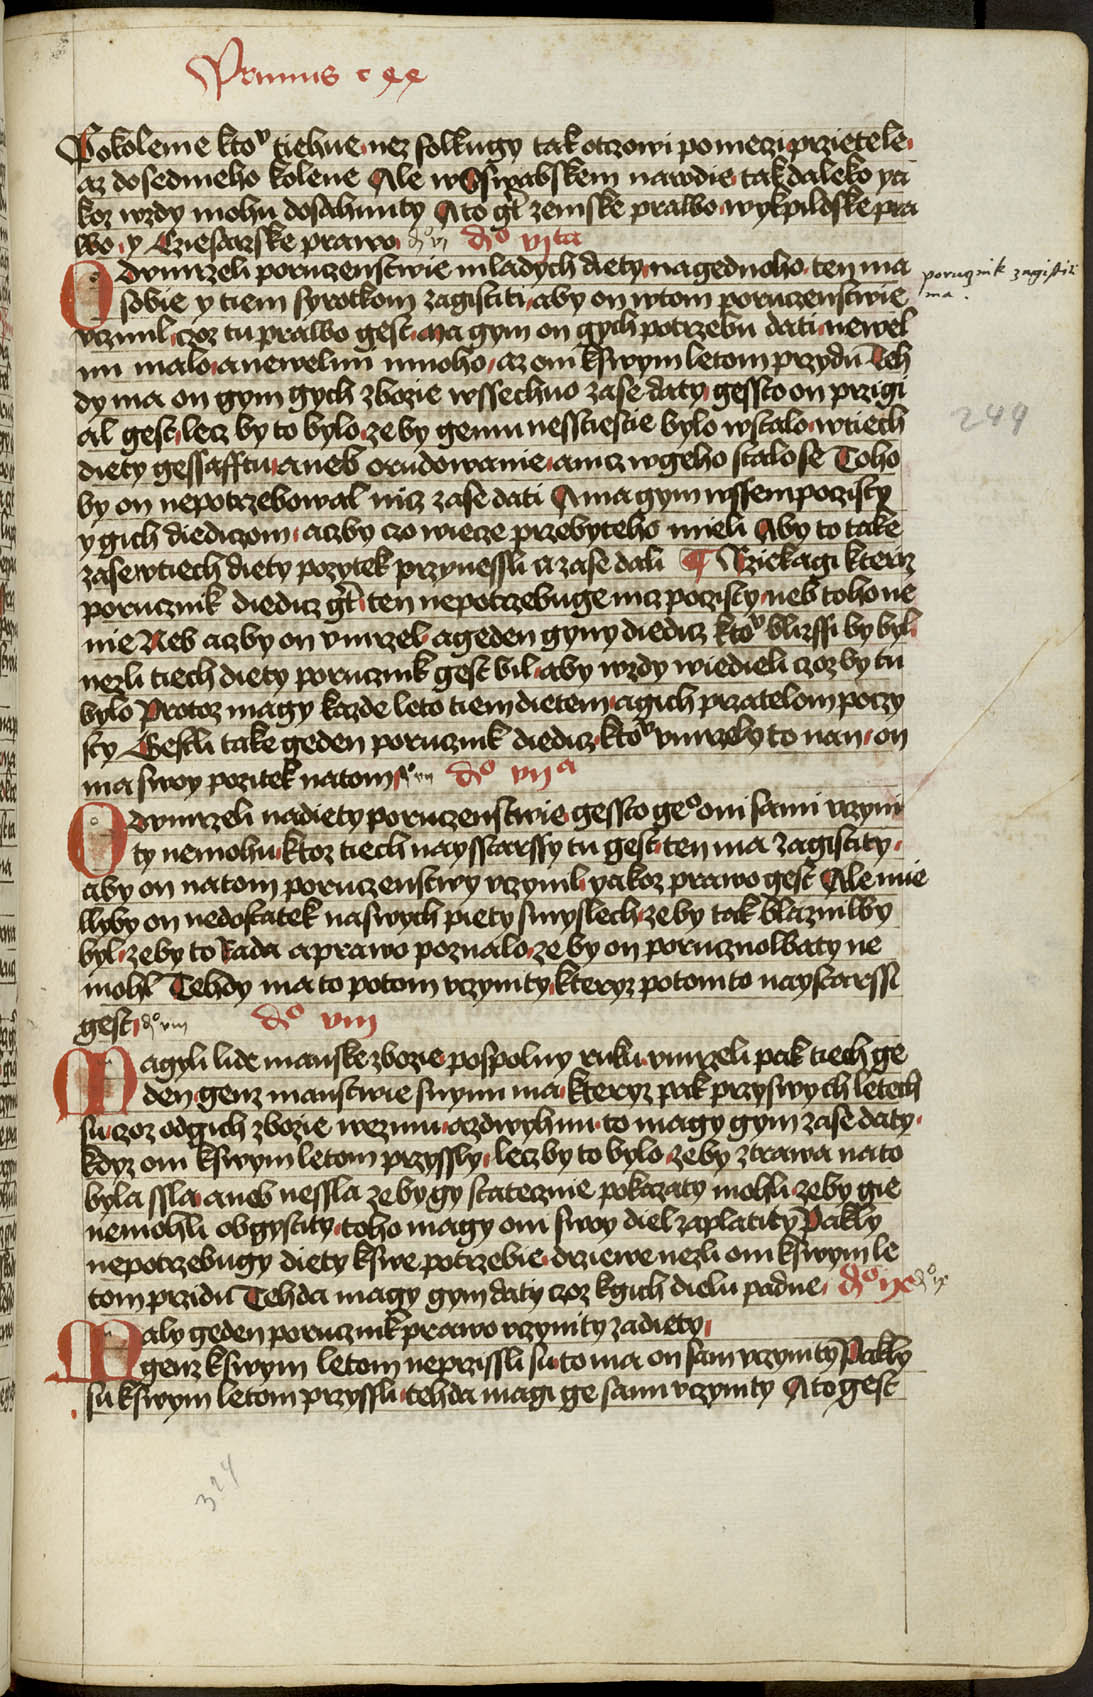 Primus c xx
Pokolenie ktoz tiehne nez solkugy tak otczowi pomeczi przietele
az dosedmeho kolene Ale wSswabskem narodie tak daleko ya
koz wzdy mohu dosahnuty Ato gt zemske prawo wykpildske pra
wo y Cziesarske prawo do vi do vita
Odvmrzeli poruczenstwie mladych diety nagednoho ten ma
sobie y tiem syrotkom zagistiti aby on wtom poruczenstwie
vczinil czoz tu prawo gest Ma gym on gych potrzebu dati newel
mi malo anewelmi mnoho az oni kswym letom przydu Teh
dy ma on gym gych zbozie wssechno zase daty gessto on przigi
al gest lecz by to bylo ze by gemu nesstiestie bylo wstalo wtiech
diety gessafftu aneb orudowanie anicz wgeho stalo se Toho
by on nepotrzebowal nicz zase dati Ama gym wssem pozisty
y gich diediczom aczby czo wiecze przebyteho mieli Aby to take
zase wtiech diety pozytek przynessli a zase dali ¶ Nziekagi kterz
porucznik diedicz gt ten nepotrzebuge nicz pozisty neb toho ne
nie Neb aczby on vmrzel ageden gyny diedicz ktoz blizssi by byl
nezli tiech diety porucznik gest bil aby wzdy wiedieli czoz by tu
bylo Protoz magy kazde leto tiem dietem agich przatelom poczy
sty Gestli take geden porucznik diedicz ktoz vmrzely to nan on
ma swoy pozitek natom do vii do viia
Odvmrzeli nadiety poruczenstwie gessto geo oni sami vczyni
ty nemohu ktoz tiech naysstarssy tu gest ten ma zagistity
aby on natom poruczenstwy vczynil yakoz prawo gest Ale mie
llyby on nedostatek naswych piety smyslech ze by tak blazniwy
byl ze by to Rada aprawo poznalo ze by on porucznowaty ne
mohl Tehdy ma to potom vczynity kteryz potomto naystarssi
gest do viii do viii
Magyli lide manske zbozie pospolny ruku vmrzeli pak tiech ge
den genz manstwie swynu ma kteryz pak przyswych letech
su czoz odgich zbozie wezmu azdwyhnu to magy gym zase daty
kdyz oni kswym letom przyssly lecz by to bylo ze by ztrawa nato
byla ssla aneb nessla ze by gy statecznie pokazaty mohli ze by gie
nemohli obgystity toho magy oni swoy diel zaplatity Pakly
nepotrzebugy diety kswe potrzebie drziewe nezli oni kswym le
tom przidu Tehda magy gym daty czoz kgich dielu padne do ix do ix
Maly geden porucznik prawo vczynity zadiety
genz kswym letom neprzissli su to ma on sam vczynity Pakly
su kswym letom przyssli tehda magi ge sami vczynity Ato gest
porucznik zagistiti
ma.
244
324